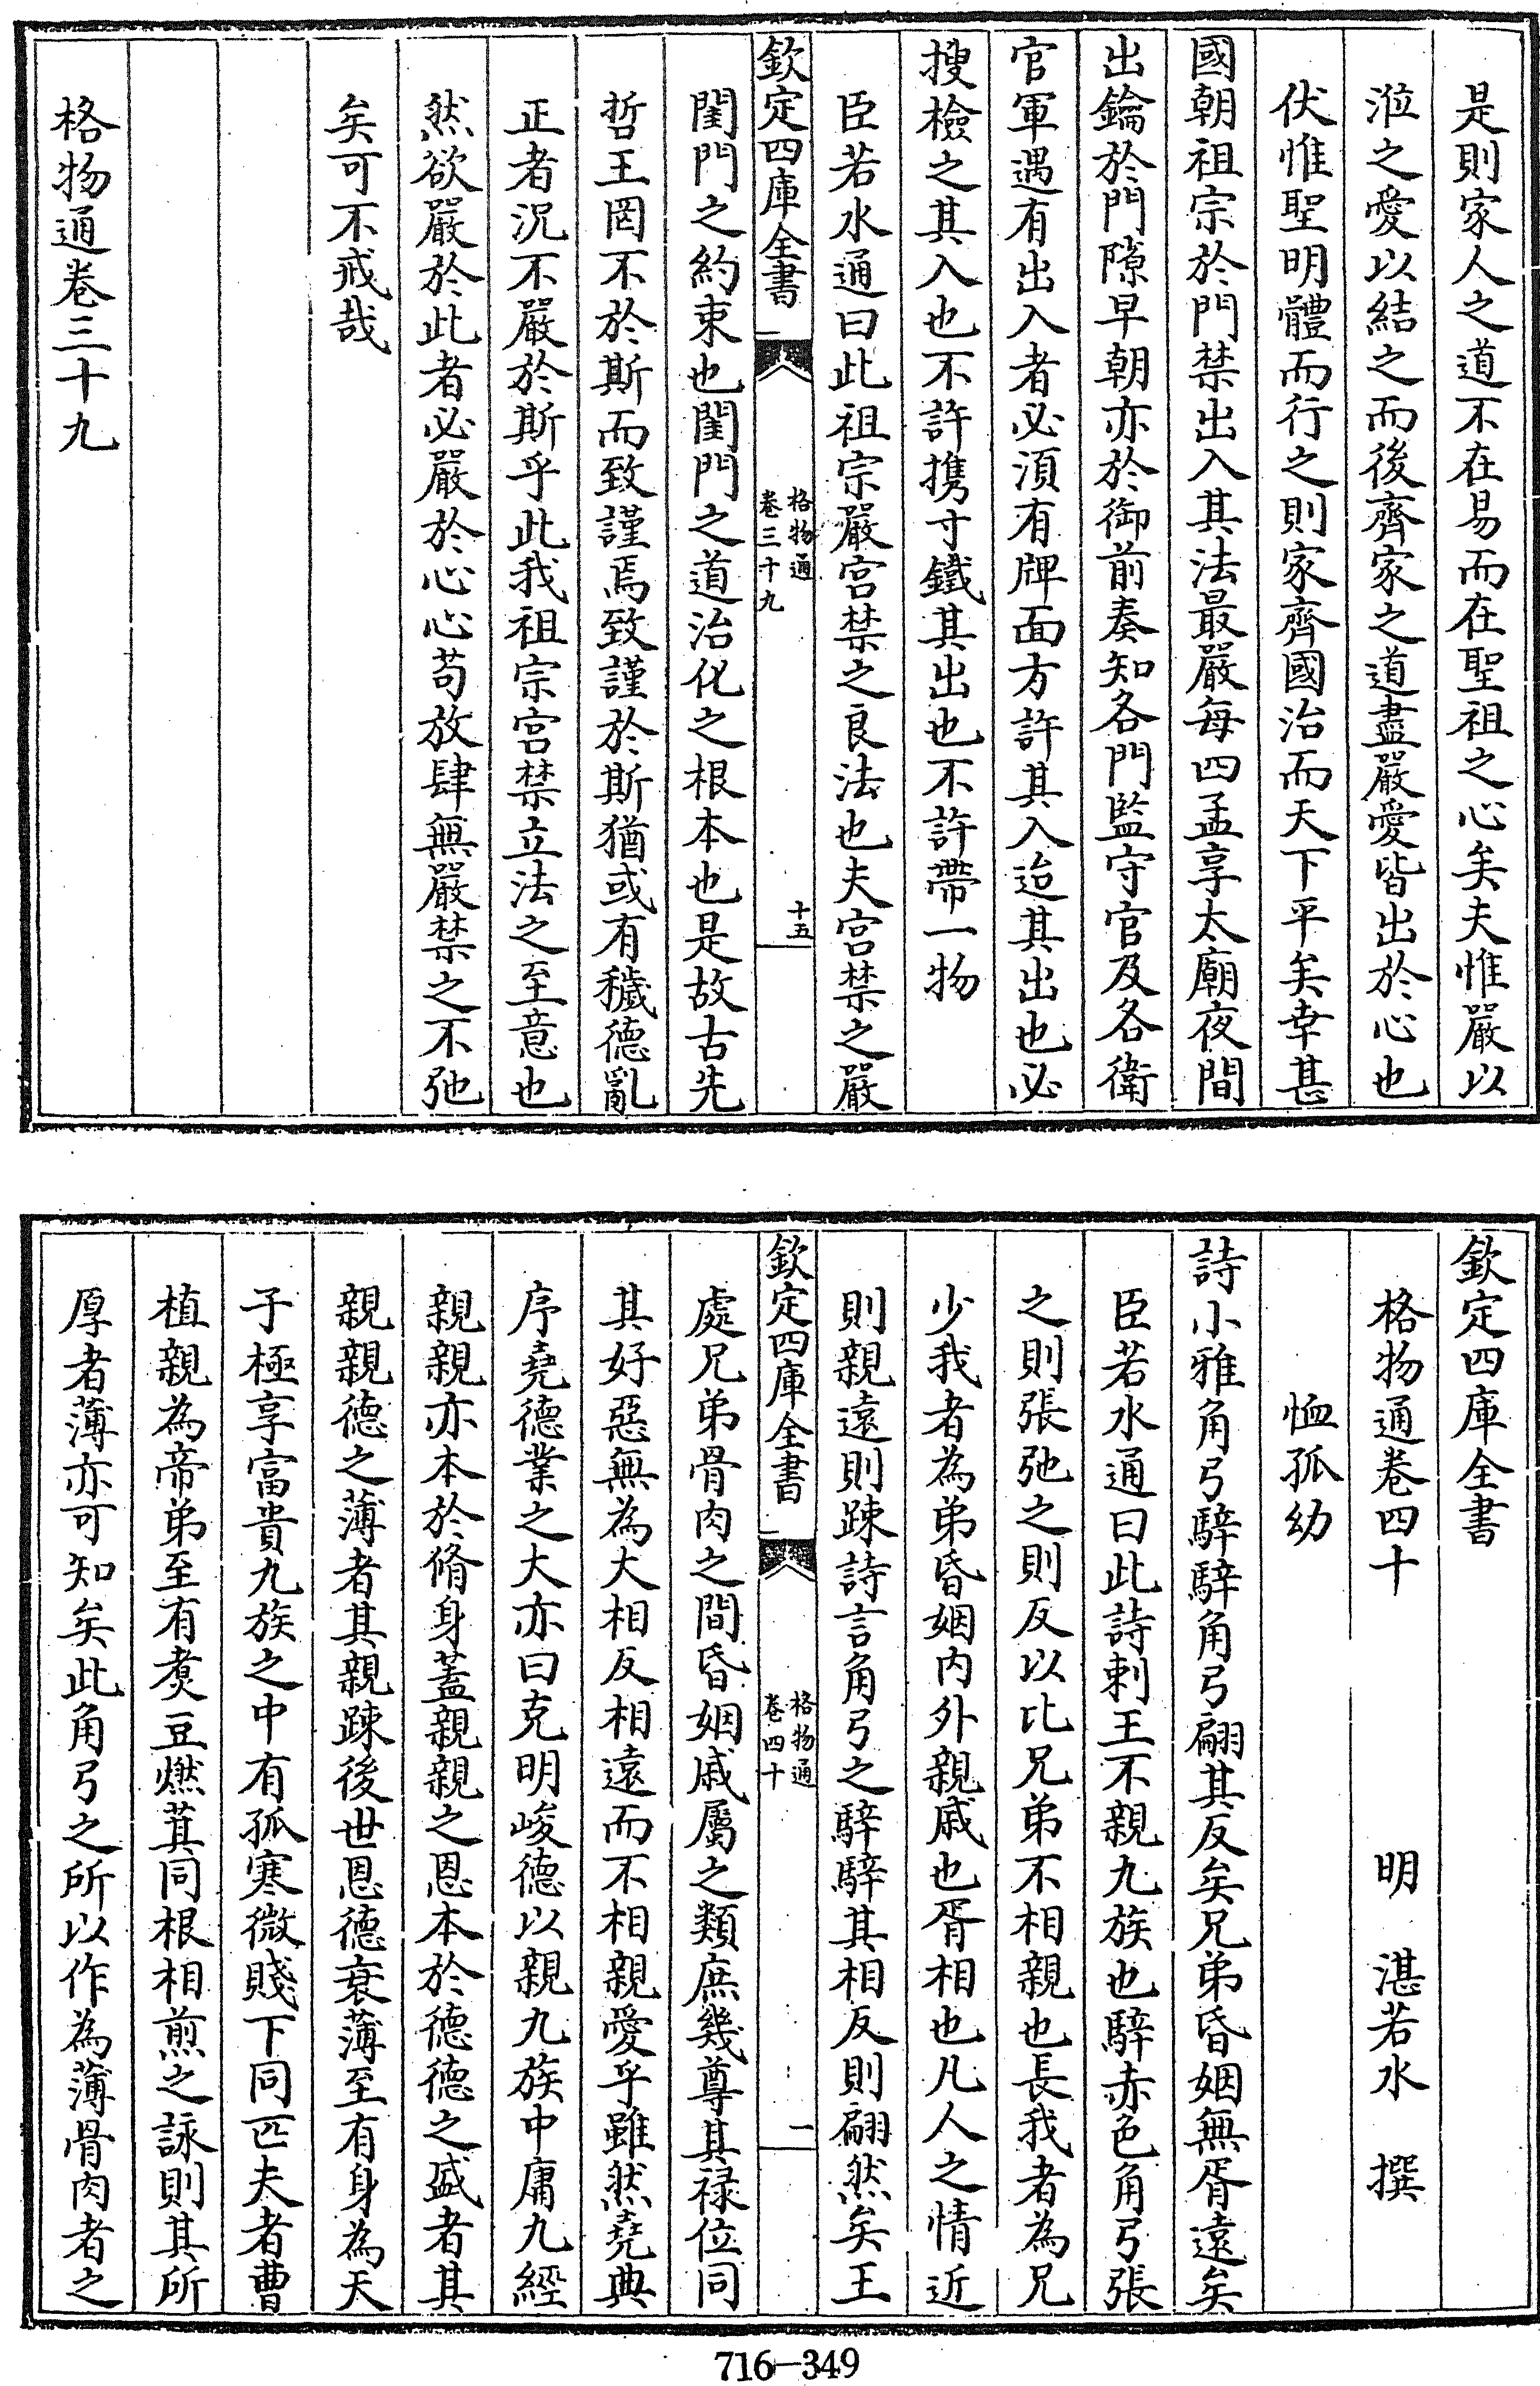 是則家人之道不在易而在聖祖之心矣夫惟嚴以
涖之愛以結之而後齊家之道盡嚴愛皆出於心也
伏惟聖明體而行之則家齊國治而天下平矣幸甚
國朝祖宗於門禁出入其法最嚴每四孟享太廟夜間
出鑰於門隙早朝亦於御前奏知各門監守官及各衛
官軍遇有出入者必須有牌面方許其入迨其出也必
搜檢之其入也不許携寸鐵其出也不許帶一物
臣若水通曰此祖宗嚴宫禁之良法也夫宫禁之嚴
欽定四庫全書
格物通
卷三十九
十五
閨門之約束也閨門之道治化之根本也是故古先
哲王罔不於斯而致謹焉致謹於斯猶或有穢德亂
正者況不嚴於斯乎此我祖宗宫禁立法之至意也
然欲嚴於此者必嚴於心心苟放肆無嚴禁之不弛
矣可不戒哉
格物通卷三十九
欽定四庫全書
格物通卷四十
明 湛若水 撰
恤孤幼
詩小雅角弓騂騂角弓翩其反矣兄弟昏姻無胥遠矣
臣若水通曰此詩刺王不親九族也騂赤色角弓張
之則張弛之則反以比兄弟不相親也長我者為兄
少我者為弟昏姻内外親戚也胥相也凡人之情近
則親遠則踈詩言角弓之騂騂其相反則翩然矣王
欽定四庫全書
格物通
卷四十
一
處兄弟骨肉之間昏姻戚屬之類庶幾尊其禄位同
其好惡無為大相反相遠而不相親愛乎雖然堯典
序堯德業之大亦曰克明峻德以親九族中庸九經
親親亦本於脩身蓋親親之恩本於德德之盛者其
親親德之薄者其親踈後世恩德衰薄至有身為天
子極享富貴九族之中有孤寒微賤下同匹夫者曹
植親為帝弟至有煑豆燃萁同根相煎之詠則其所
厚者薄亦可知矣此角弓之所以作為薄骨肉者之
716-349